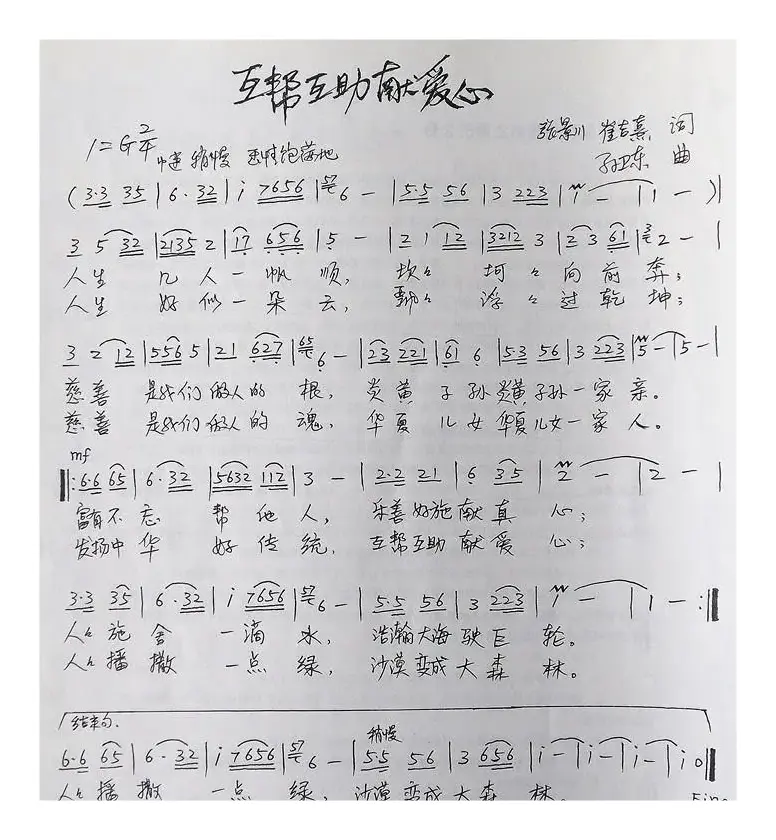 互帮互助献爱心
1=G 2/4 中速 稍慢
张景川 崔吉熹 词
孙卫东 曲
(3·3 35 | 6·32 | i 7656 | 6 - | 5·5 56 | 3 223 | 1 - | 1 - )|
3 5 32 | 2135 2 | 17 656 | 5 - | 2 1 12 | 3212 3 | 2 3 61 | 2 - |
人生 几人一帆顺, 坎々坷々向前奔;
人生 好似一朵云, 飘々浮々过乾坤;
3 2 12 | 556 5 | 21 627 | 6 - | 23 221 | 61 6 | 5·3 56 | 3 223 | 5 - | 5 - |
慈善 是我们做人的 根, 炎黄 子孙炎黄子孙一家亲。
慈善 是我们做人的 魂, 华夏 儿女华夏儿女一家人。
mf
‖: 6·6 65 | 6·32 | 5632 112 | 3 - | 2·2 21 | 6 35 | 2 - | 2 - |
富有不忘 帮他人, 乐善好施献真心;
发扬中华 好传统, 互帮互助献爱心;
3·3 35 | 6·32 | i 7656 | 6 - | 5·5 56 | 3 223 | 1 - | 1 - :‖
人々施舍 一滴水, 浩瀚大海驶巨轮。
人々播撒 一点绿, 沙漠变成大森林。
结束句.
稍慢
6·6 65 | 6·32 | i 7656 | 6 - | 5·5 56 | 3 656 | i - | i - | i - | i 0 ‖
人々播撒 一点绿, 沙漠变成大森林。
Fine